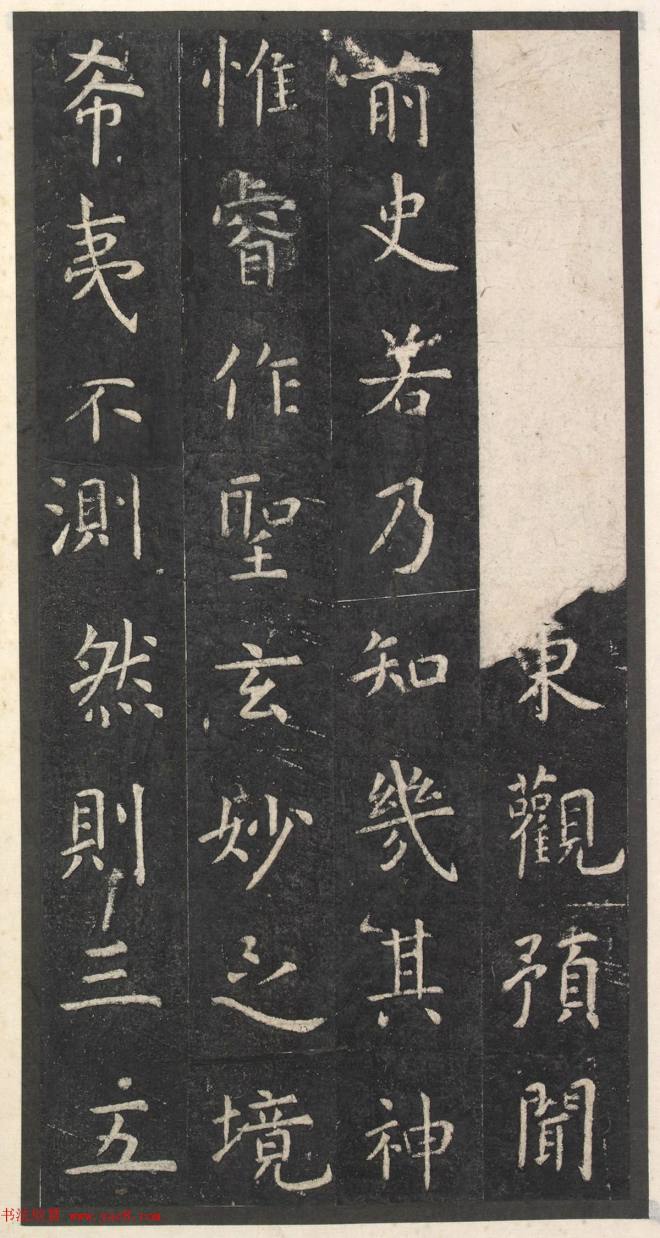 東觀預聞
前史若乃知幾其神
惟睿作聖玄妙之境
希夷不測然則三五
书法欣赏 www.yac8.com